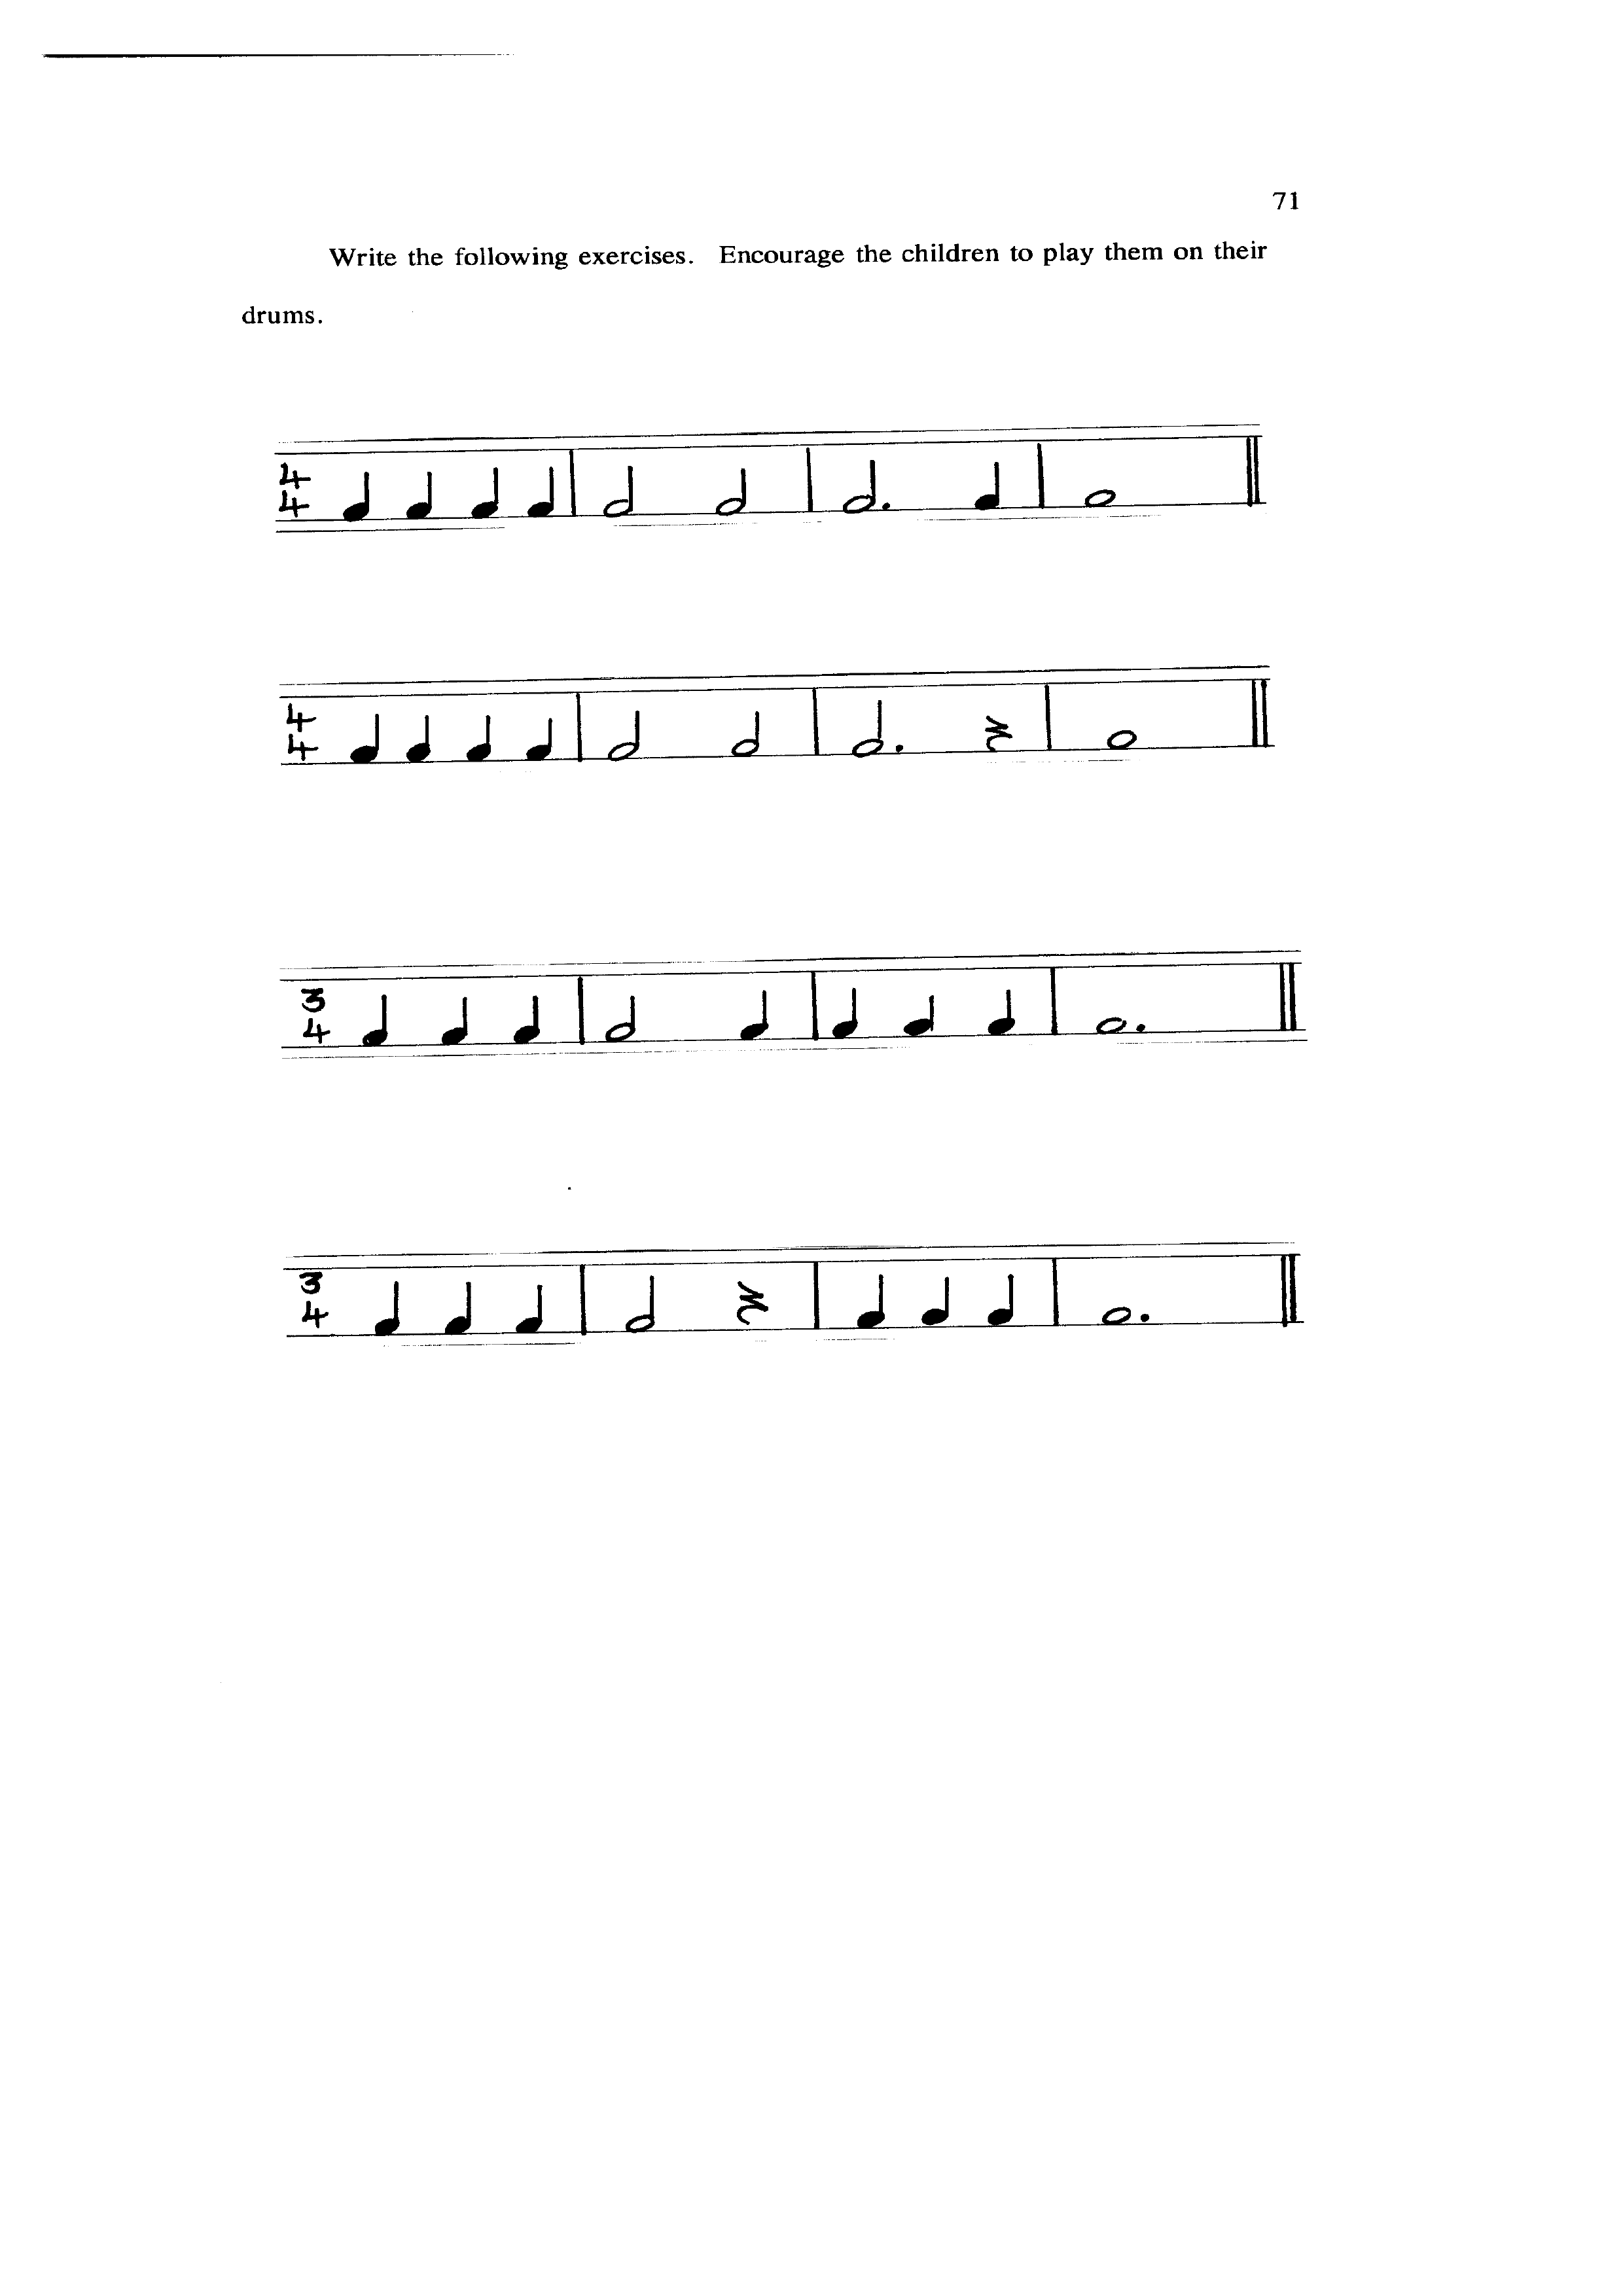 71
Write the following exercises. Encourage the children to play them on their
drums.
4
4
4
4
3
4
3
4